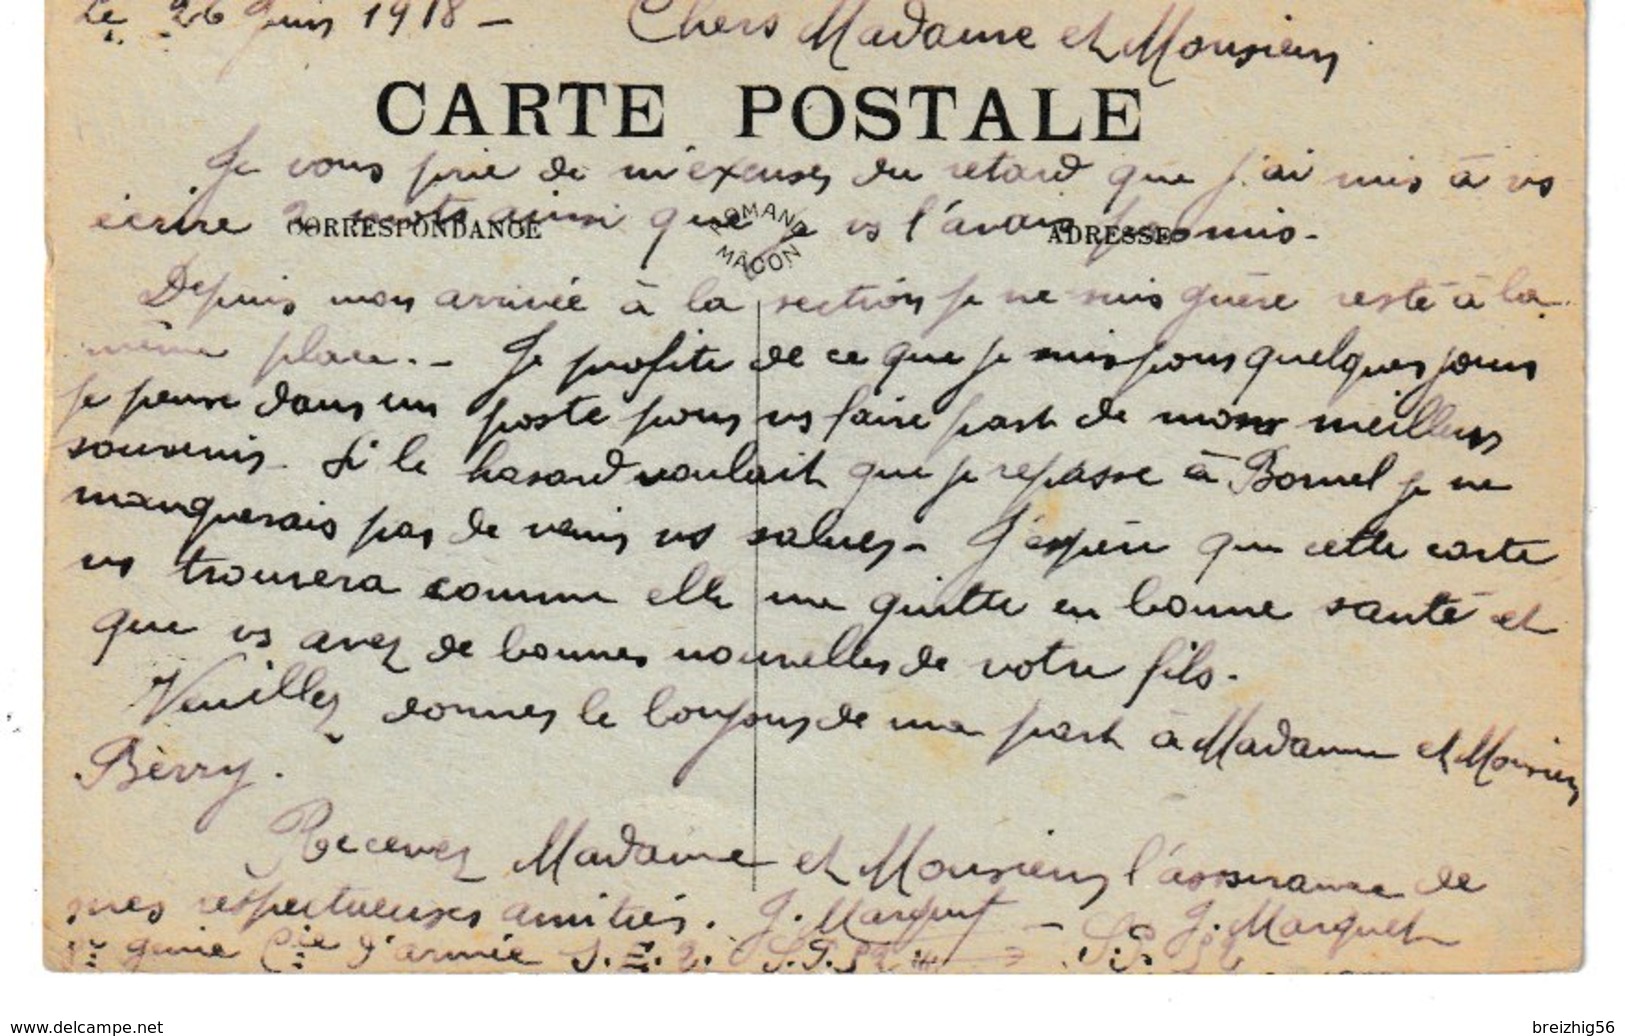 Le 26 Juin 1918 - Chers Madame et Monsieur
CARTE POSTALE
Je vous prie de m'excuser du retard que j'ai mis à vs
écrire 2 mots ainsi que je vs l'avais promis -
CORRESPONDANCE
ROMAND MACON
ADRESSE
Depuis mon arrivée à la section je ne suis guère resté à la
même place. - Je profite de ce que je suis pour quelques jours
je pense dans un poste pour vs faire part de mon meilleur
souvenir - Si le hasard voulait que je repasse à Bornel je ne
manquerais pas de venir vs saluer - J'espère que cette carte
vs trouvera comme elle me quitte en bonne santé et
que vs avez de bonnes nouvelles de votre fils -
Veuillez donner le bonjour de ma part à Madame et Monsieur
Bèrry.
Recevez Madame et Monsieur l'assurance de
mes respectueuses amitiés. J. Marquet - J. Marquet
génie Cie d'armée S.E.2. S.P. 52
breizhig56